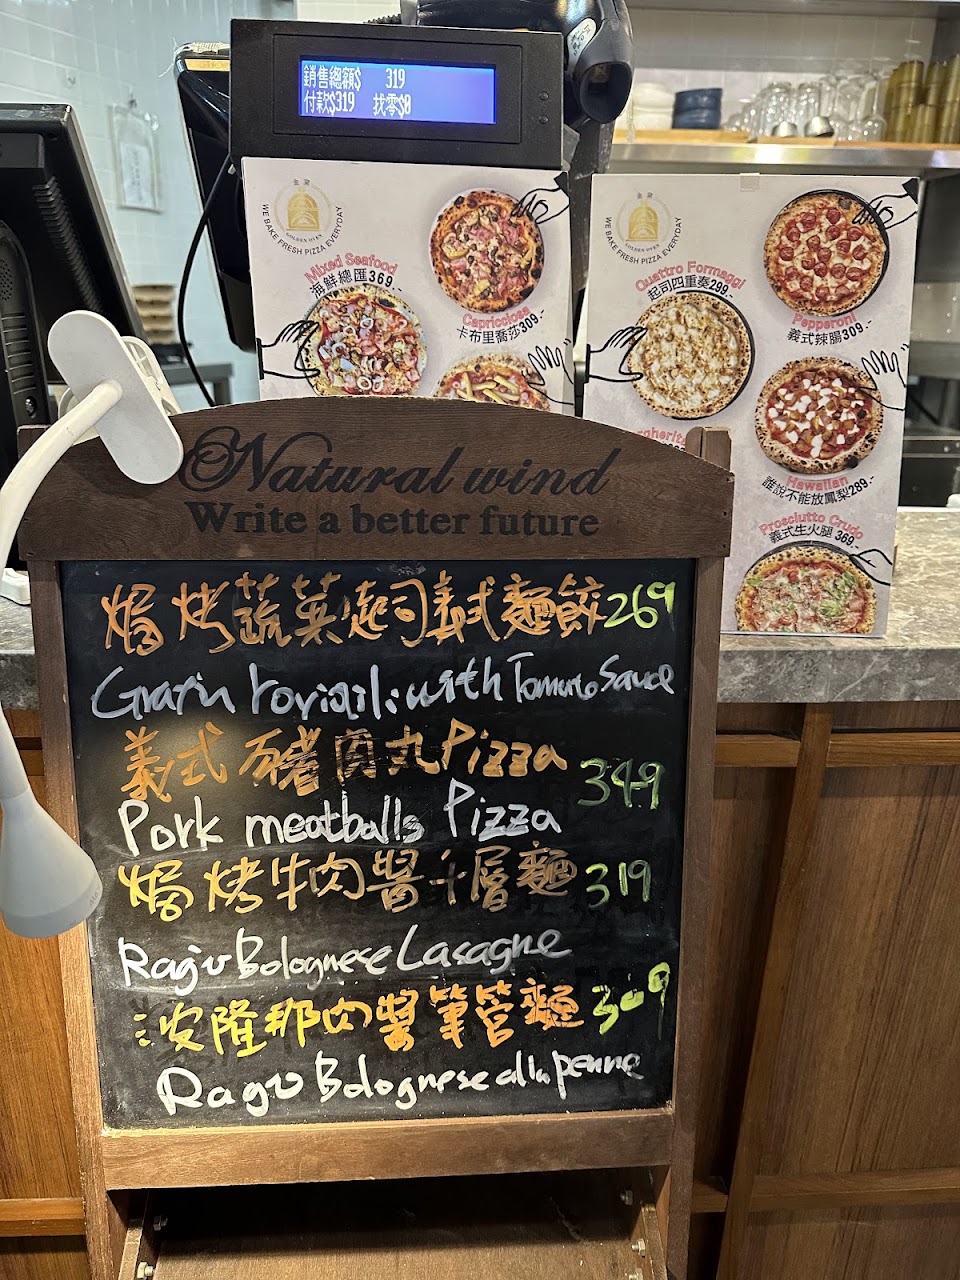 銷售總額$ 319
付款$319 找零$0
金窯
GOLDEN OVEN
WE BAKE FRESH PIZZA EVERYDAY
Mixed Seafood
海鮮總匯369.-
Capricolosa
卡布里喬莎309.-
金窯
GOLDEN OVEN
WE BAKE FRESH PIZZA EVERYDAY
Quattro Formaggi
起司四重奏299.-
Pepperoni
義式辣腸309.-
Hawaiian
誰說不能放鳳梨289.-
Prosciutto Crudo
義式生火腿 369.-
Natural wind
Write a better future
焗烤蔬菜起司義式麵餃269
Gratin with Tomato Sauce
義式豬肉丸Pizza 349
Pork meatballs Pizza
焗烤牛肉醬千層麵 319
Ragu Bolognese Lasagne
波隆那肉醬筆管麵 309
Ragu Bolognese alla penne